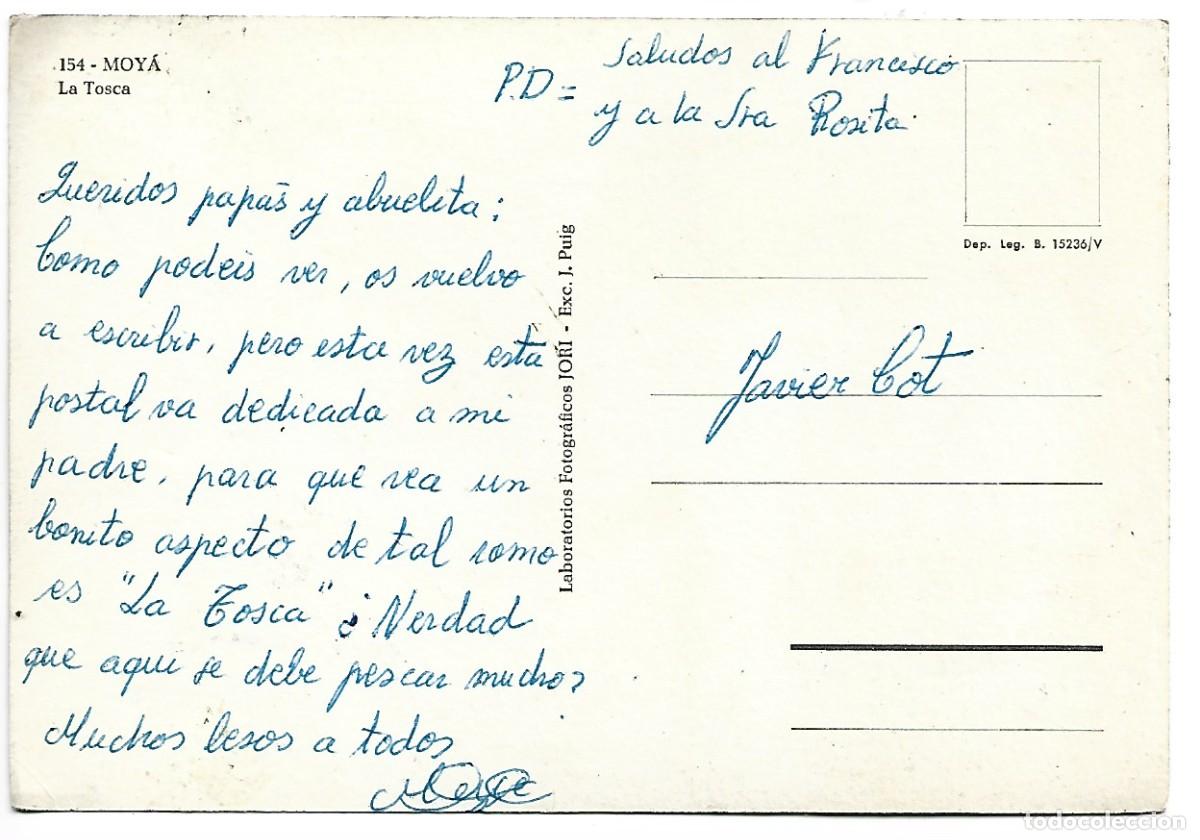 154 - MOYÁ
La Tosca
P.D = Saludos al Francisco
y a la Sra Rosita.
Queridos papás y abuelita:
Como podéis ver, os vuelvo
a escribir, pero esta vez esta
postal va dedicada a mi
padre, para que vea un
bonito aspecto de tal como
es "La Tosca" ¿Verdad
que aqui se debe pescar mucho?
Muchos besos a todos
Laboratorios Fotográficos JORI - Exc. J. Puig
Dep. Leg. B. 15236/V
Javier Cot
todocoleccion